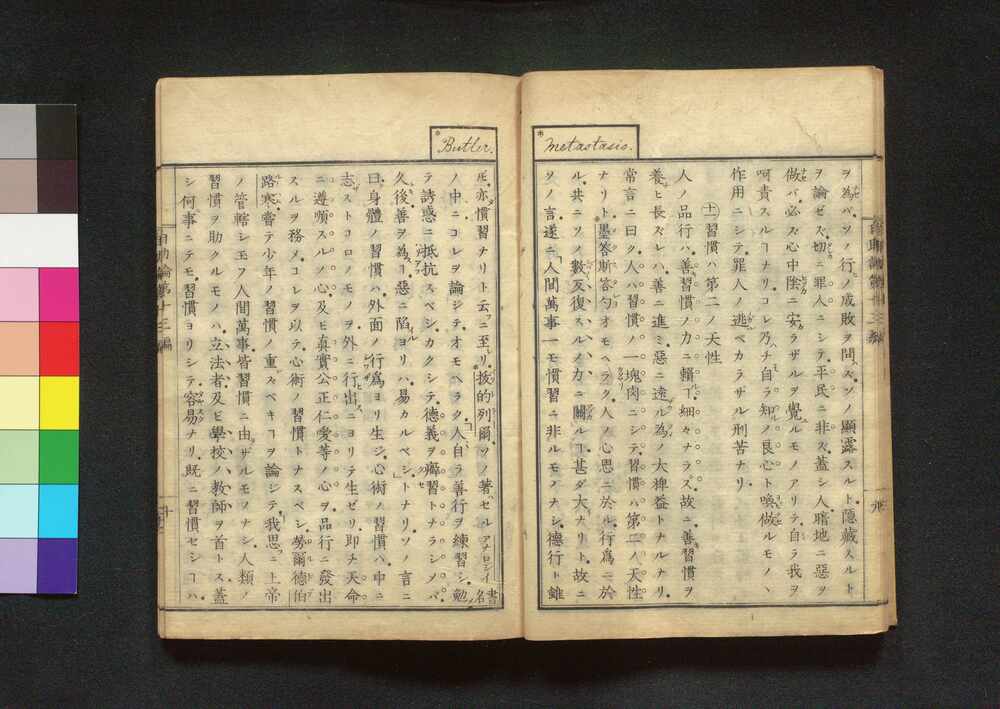 *Metastasio.
ヲ為バ、ソノ行ノ成敗ヲ問ハズ、ソノ顕露スルト隠藏スルト
ヲ論ゼズ、切ニ罪人ニシテ平民ニ非ズ、蓋シ人暗地ニ惡ヲ
做バ、必ズ心中陰ニ安ラザルヲ覺ルモノアリテ、自ラ我ヲ
呵責スルヿナリ、コレ乃チ自ラ知ノ良心ト喚做ルモノヽ
作用ニシテ、罪人ノ逃ベカラザル刑苦ナリ
十二習慣ハ第二ノ天性
人ノ品行ハ、善習慣ノ力ニ賴ヿ細々ナラズ、故ニ善習慣ヲ
養ヒ長ズレハ、善ニ進ミ惡ニ遠ル為ノ大裨益トナルナリ、
常言ニ曰ク、人ハ習慣ノ一塊肉ニシテ、習慣ハ第二ノ天性
ナリト、墨答斯答勺オモヘラク、人ノ心思ニ於ル、行為ニ於
ル、共ニソノ數反復スルノ力ニ關ルヿ甚ダ大ナリト、故ニ
ソノ言遂ニ人間萬事一モ慣習ニ非ルモノナシ、德行ト雖
*Butler.
𪜈、亦慣習ナリト云フニ至リ、抜的列爾ソノ著セルアナロジイ書名
ノ中ニコレヲ論ジテ、オモヘラク、人自ラ善行ヲ練習シ、勉
テ誘惑ニ抵抗スベシ、カクシテ德義ヲ癖習トナラシメバ、
久後善ヲ為ヿ、惡ニ陷ヨリハ易カルベシトナリ、ソノ言ニ
曰、身體ノ習慣ハ、外面ノ行為ヨリ生ジ、心術ノ習慣ハ、中ニ
志ストコロノモノヲ外ニ行出ニヨリテ生ゼリ、即チ天命
ニ遵順スルノ心、及ビ真實公正仁愛等ノ心ヲ品行ニ發出
スルヲ務メ、コレヲ以テ心術ノ習慣トナスベシ、勞爾德伯
路寒嘗テ少年ノ習慣ノ重スベキヿヲ論シテ、我思ニ上帝
ノ管轄シモフ人間萬事、皆習慣ニ由ザルモノナシ、人類ノ
習慣ヲ助クルモノハ、立法者及ビ學校ノ教師ヲ首トス、蓋
シ何事ニテモ、習慣ヨリシテ容易ナリ、既ニ習慣セシヿハ、
自助論第十三編
十